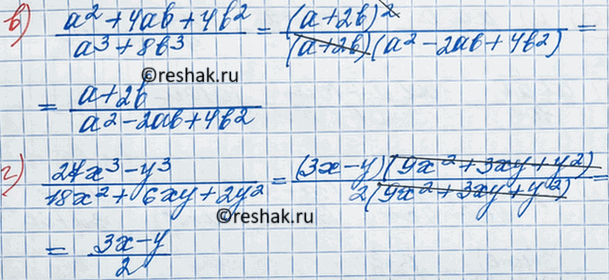 в) (a² + 4ab + 4b²)/(a³ + 8b³) = (a+2b)²/((a+2b)(a² - 2ab + 4b²)) =
©reshak.ru
= (a+2b)/(a² - 2ab + 4b²)
г) (27x³ - y³)/(18x² + 6xy + 2y²) = ((3x-y)(9x² + 3xy + y²))/(2(9x² + 3xy + y²)) =
©reshak.ru
= (3x-y)/2